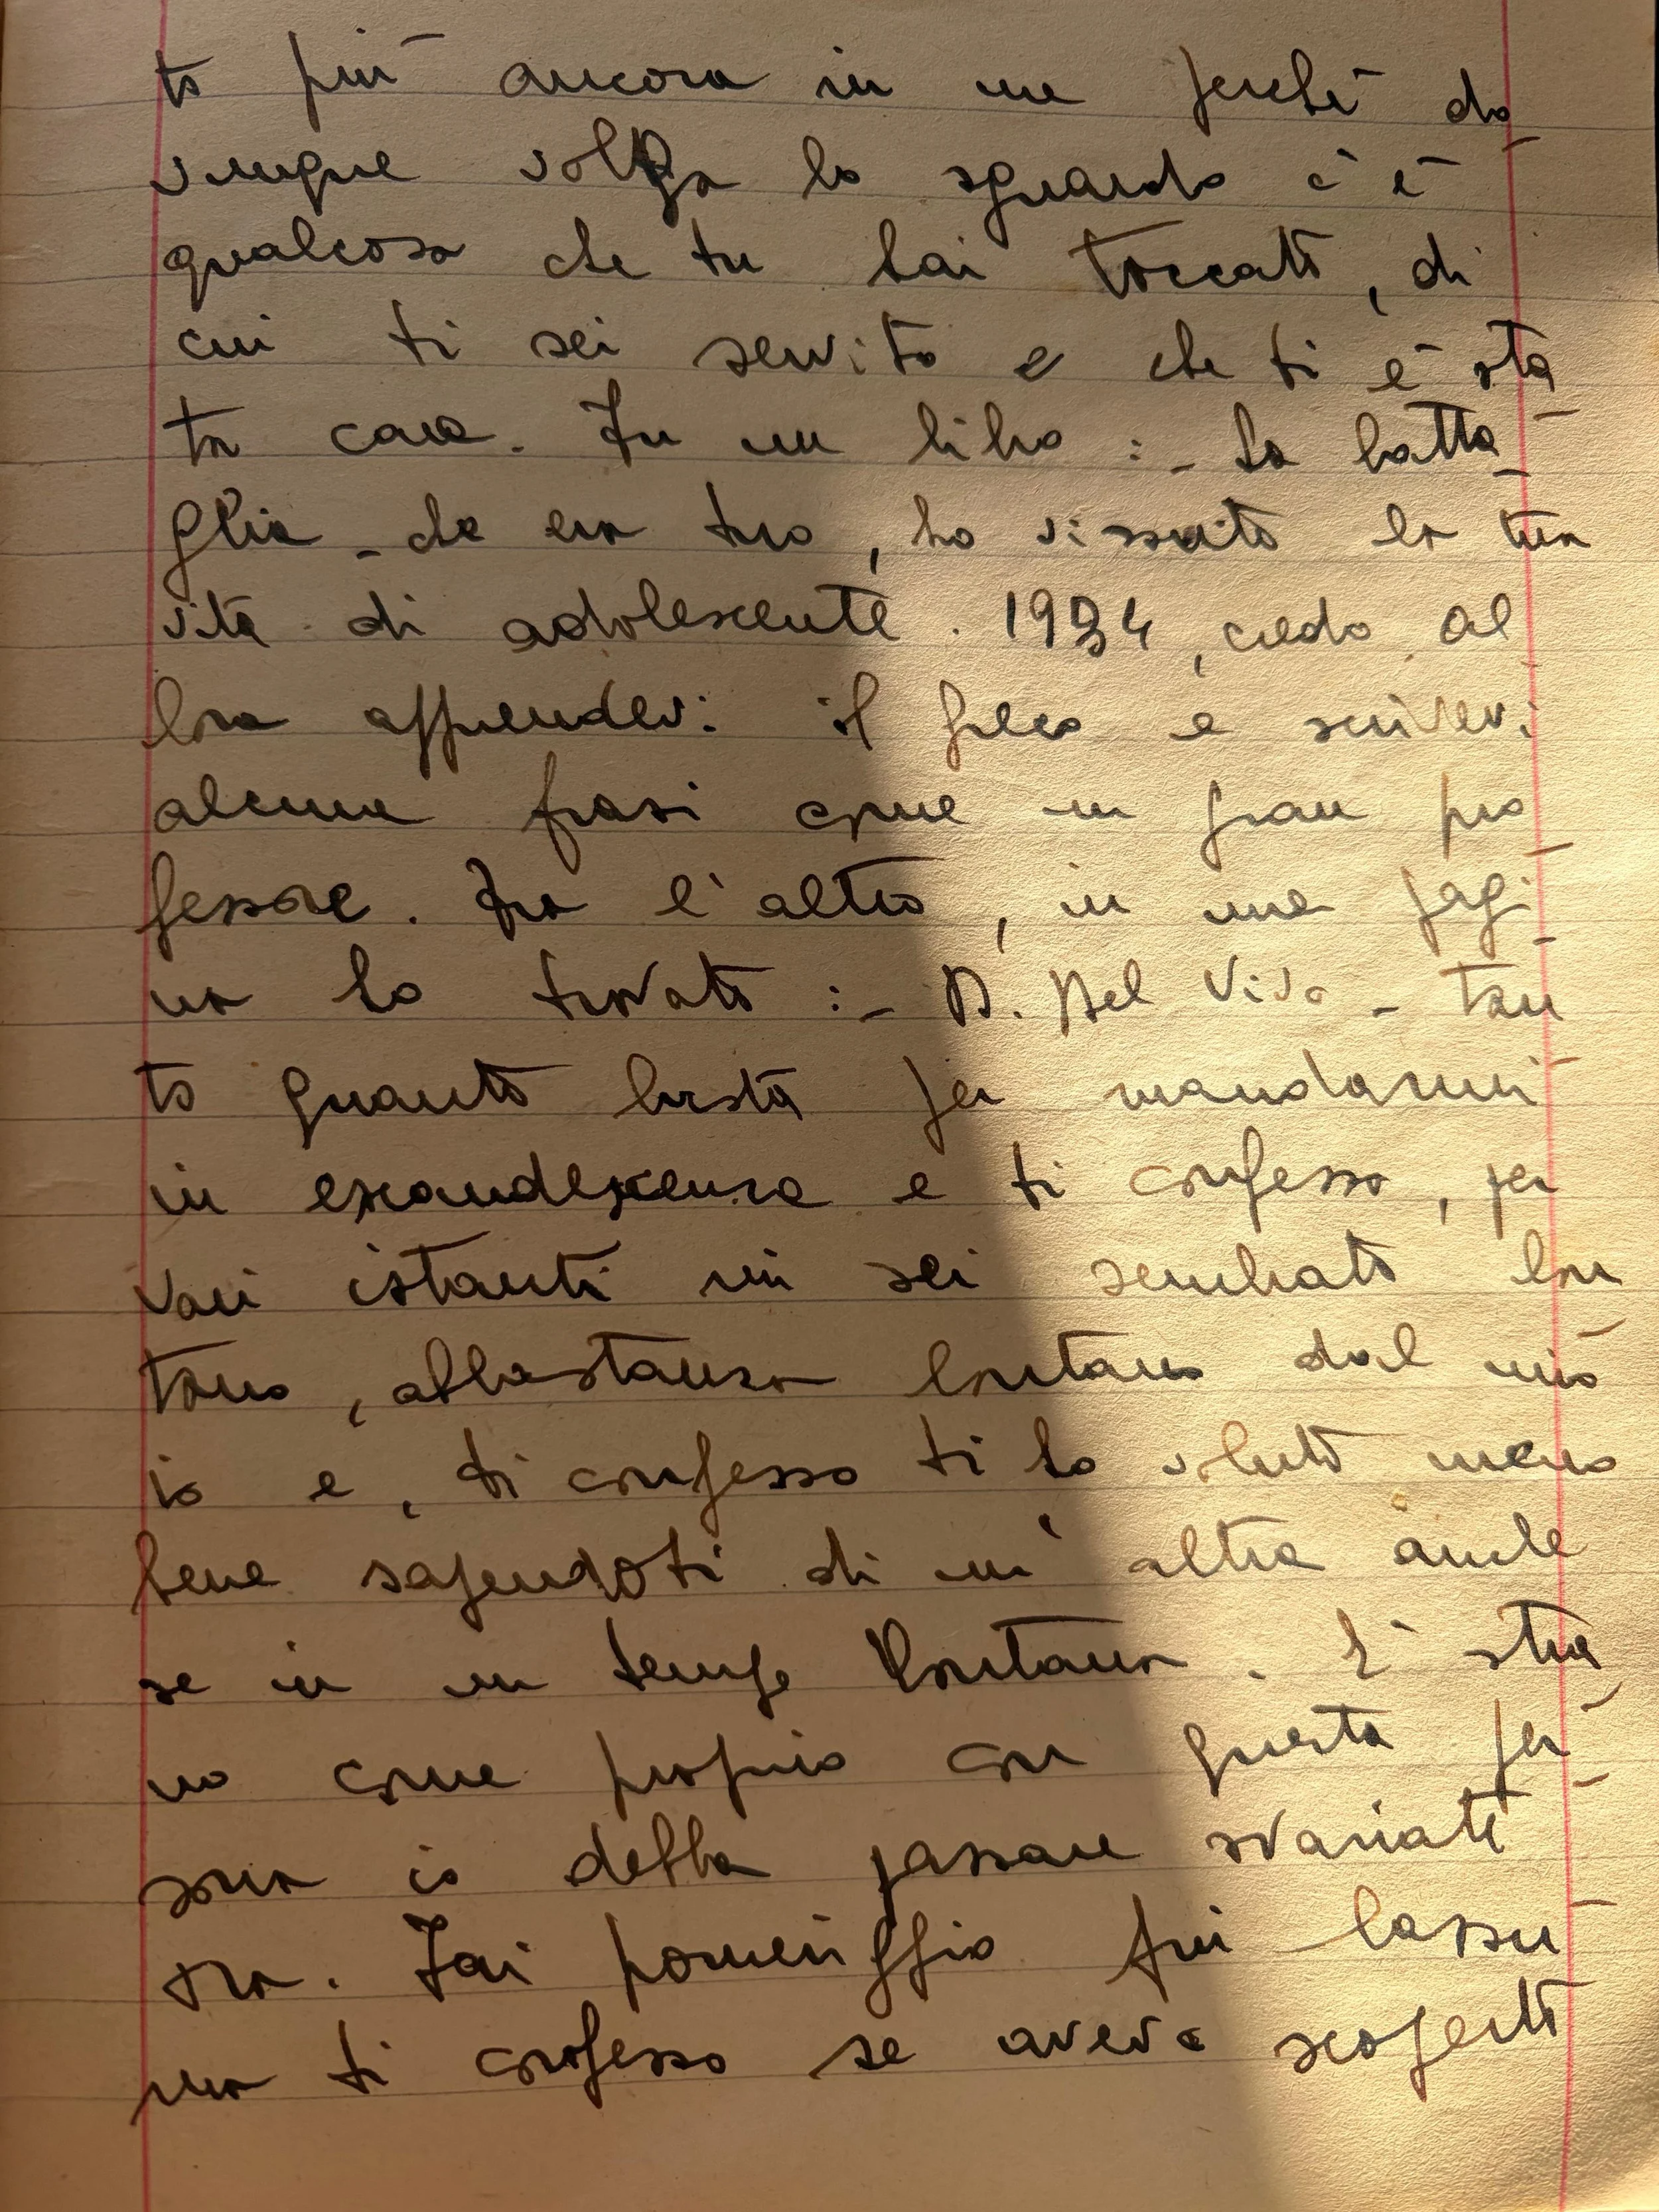 to più ancora in me perché do-
vunque volga lo sguardo c'è
qualcosa che tu hai toccato, di
cui ti sei servito e che ti è sta
ta cara. In un libro :- La batta-
glia - che era tuo, ho vissuto la tua
vita di adolescente. 1934, credo al
lora apprendevi il greco e scrivevi
alcune frasi come un gran pro-
fessore. Fra l'altro, in una pagi-
na ho trovato :- D. Del Vivo - tan
to quanto basta per mandarmi
in escandescenza e ti confesso, per
vari istanti mi sei sembrato lon
tano, abbastanza lontano dal mio
io e, ti confesso ti ho voluto meno
bene sapendoti di un'altra anche
se in un tempo lontano. È stra
no come proprio con questa per-
sona io debba passare svariate
ore. Ieri pomeriggio fui lassù
ma ti confesso se avevo scoperto